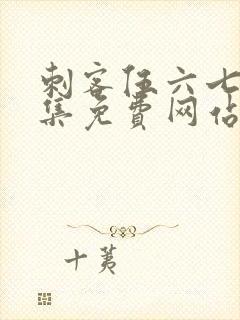 刺客伍六七
集免费网站
十荑